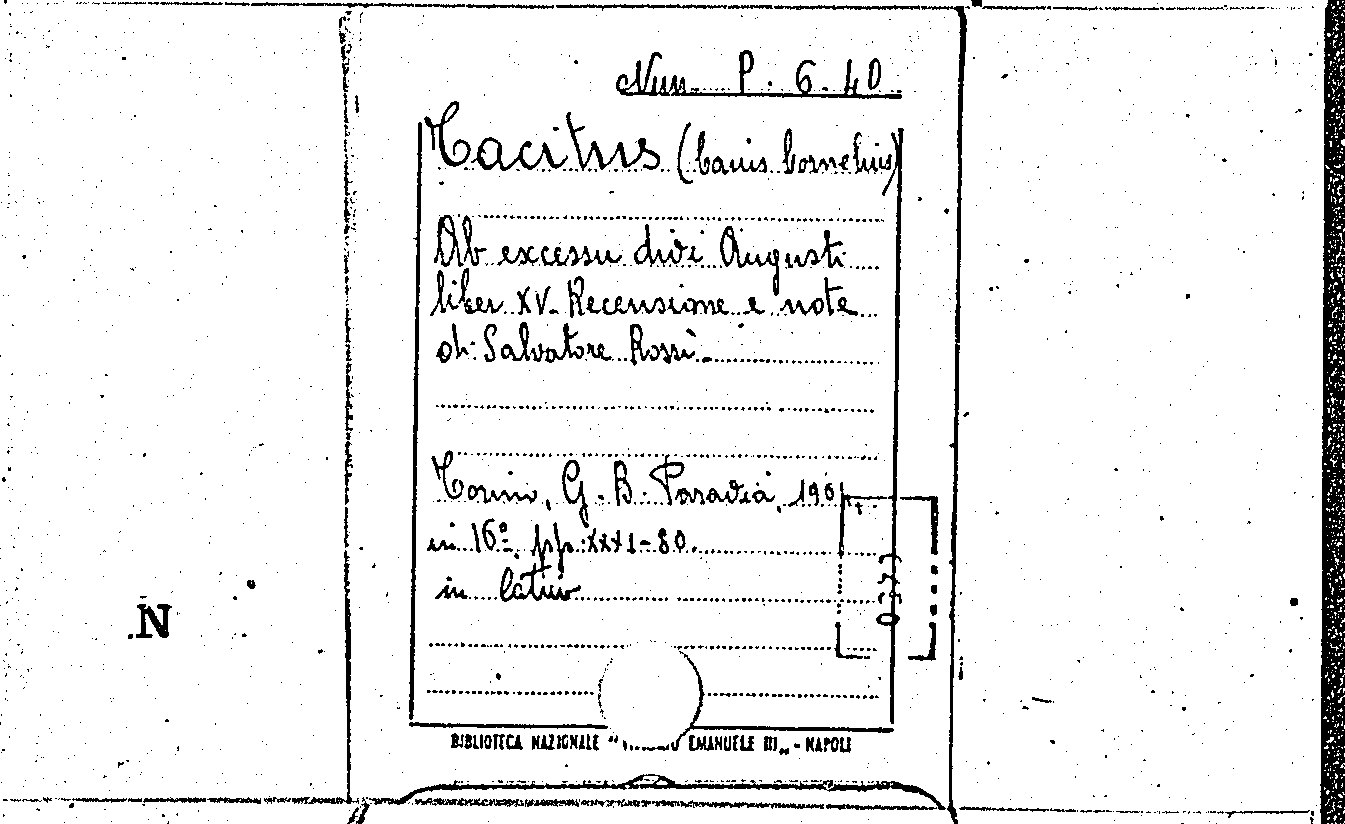 Nun. P. 6. 40
Tacitus (Caius Cornelius)
Ab excessu divi Augusti
liber XV. Recensione e note
di Salvatore Rossi.
Torino, G. B. Paravia, 1901.
in 16º. pp. XXXI-80.
in latino
N
BIBLIOTECA NAZIONALE " EMANUELE III„ - NAPOLI